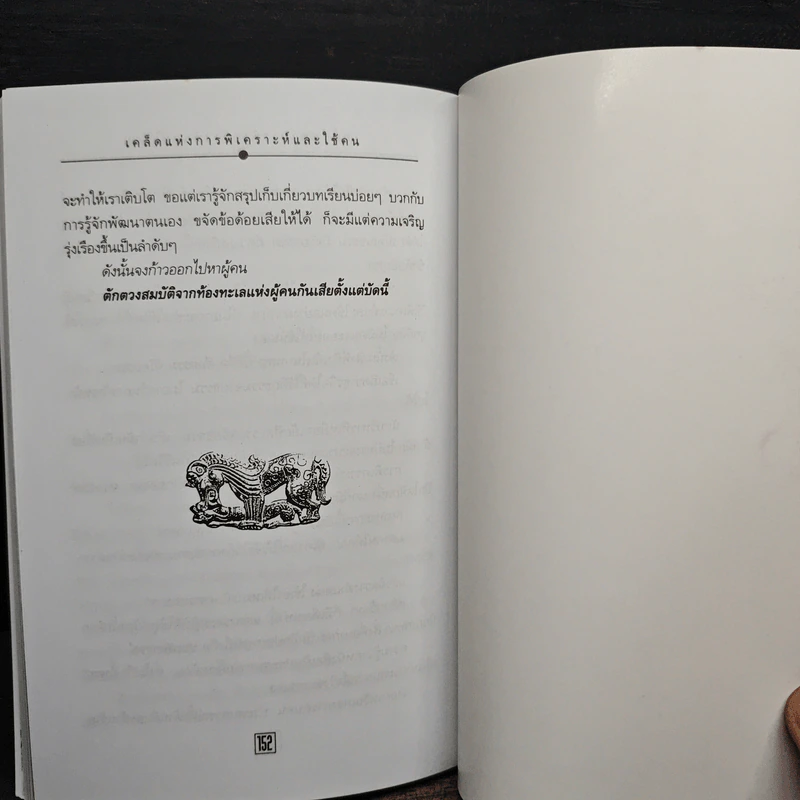 เคล็ดแห่งการพิเคราะห์และใช้คน
จะทำให้เราเติบโต ขอแต่เรารู้จักสรุปเก็บเกี่ยวบทเรียนบ่อยๆ บวกกับ
การรู้จักพัฒนาตนเอง ขจัดข้อด้อยเสียให้ได้ ก็จะมีแต่ความเจริญ
รุ่งเรืองขึ้นเป็นลำดับๆ
ดังนั้นจงก้าวออกไปหาผู้คน
ตักตวงสมบัติจากท้องทะเลแห่งผู้คนกันเสียตั้งแต่บัดนี้
152